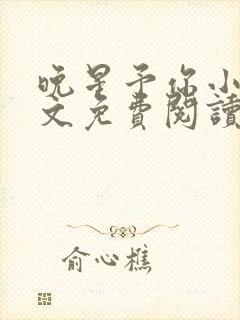 晚星予你小
文免費閱讀
俞心樵